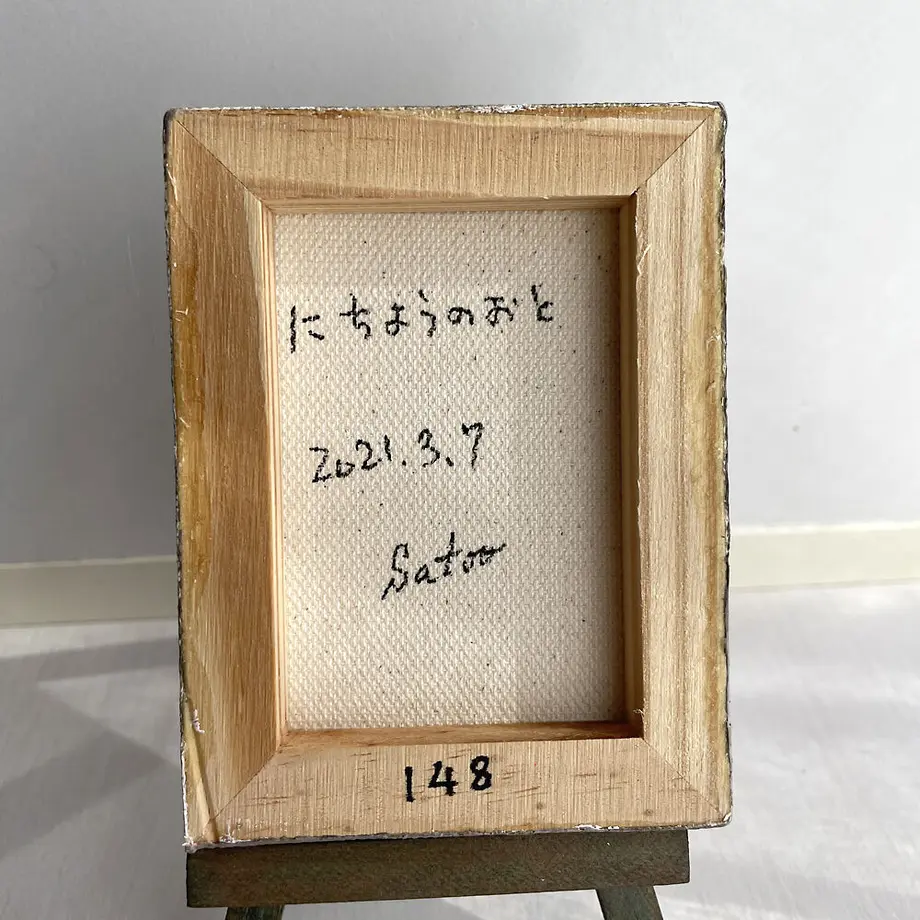 にちようのおと
2021.3.7
Satoo
148